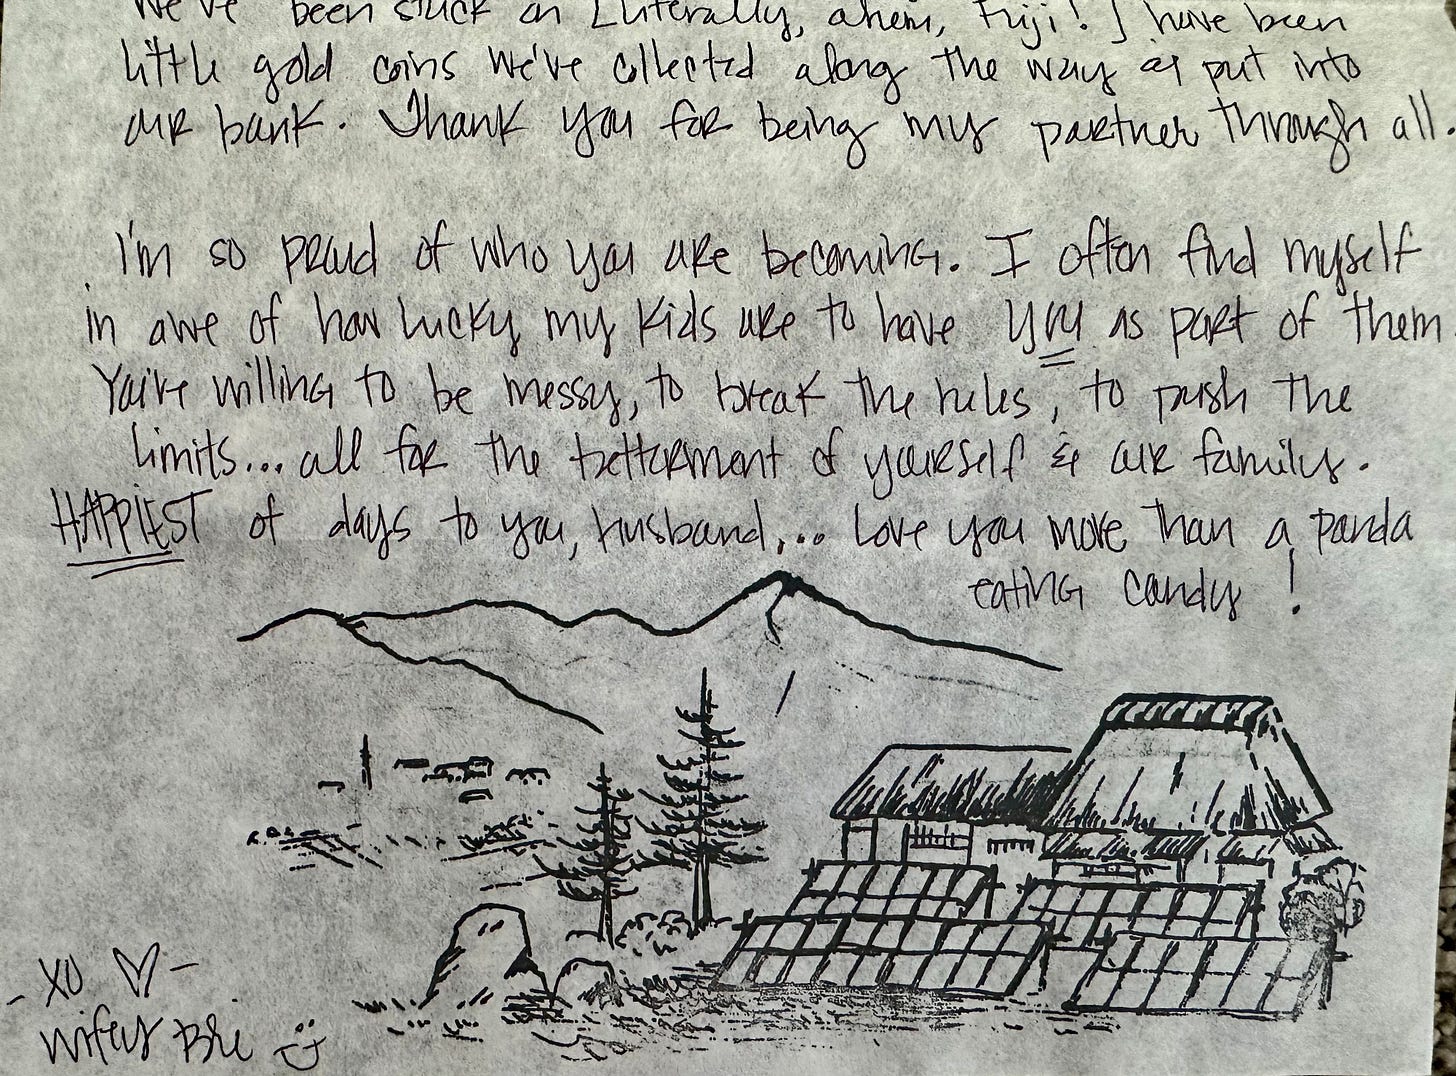 We've been stuck on (literally, ahem, Fiji! I have been
little gold coins we've collected along the way & put into
our bank. Thank you for being my partner through all.
I'm so proud of who you are becoming. I often find myself
in awe of how lucky my kids are to have you as part of them
You're willing to be messy, to break the rules, to push the
limits... all for the betterment of yourself & our family.
HAPPIEST of days to you, husband... Love you more than a panda
eating candy!
- XO ♡ -
Wifey Bri